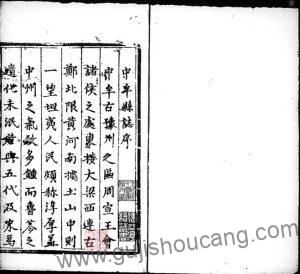 中牟縣誌序
中牟古豫州之區周宣王會
諸侯之處東接大梁西連古
鄭北限黃河南土山中則
一望坦夷人民頗稱淳厚蓋
中州之氣多鍾而魯恭之
遺化未泯五代及宋為
www.gujishoucang.com